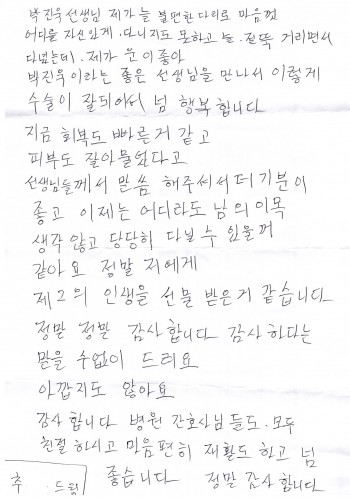 박진우 선생님 제가 늘 불편한 다리로 마음껏
어디를 자신있게 다니지도 못하고 늘 절뚝 거리면서
다녔는데. 제가 운이 좋아
박진우 이라는 좋은 선생님을 만나서 이렇게
수술이 잘되어서 넘 행복합니다
지금 회복도 빠른거 같고
피부도 잘아물었다고
선생님들께서 말씀 해주셔서 더 기분이
좋고 이제는 어디라도 남의 이목
생각 않고 당당히 다닐 수 있을꺼
같아요 정말 저에게
제2의 인생을 선물 받은거 같습니다
정말 정말 감사합니다 감사하다는
말을 수없이 드려요
아깝지도 않아요
감사합니다 병원 간호사님들도. 모두
친절하시고 마음편히 재활도 하고 넘
좋습니다 정말 감사합니다
추 드림